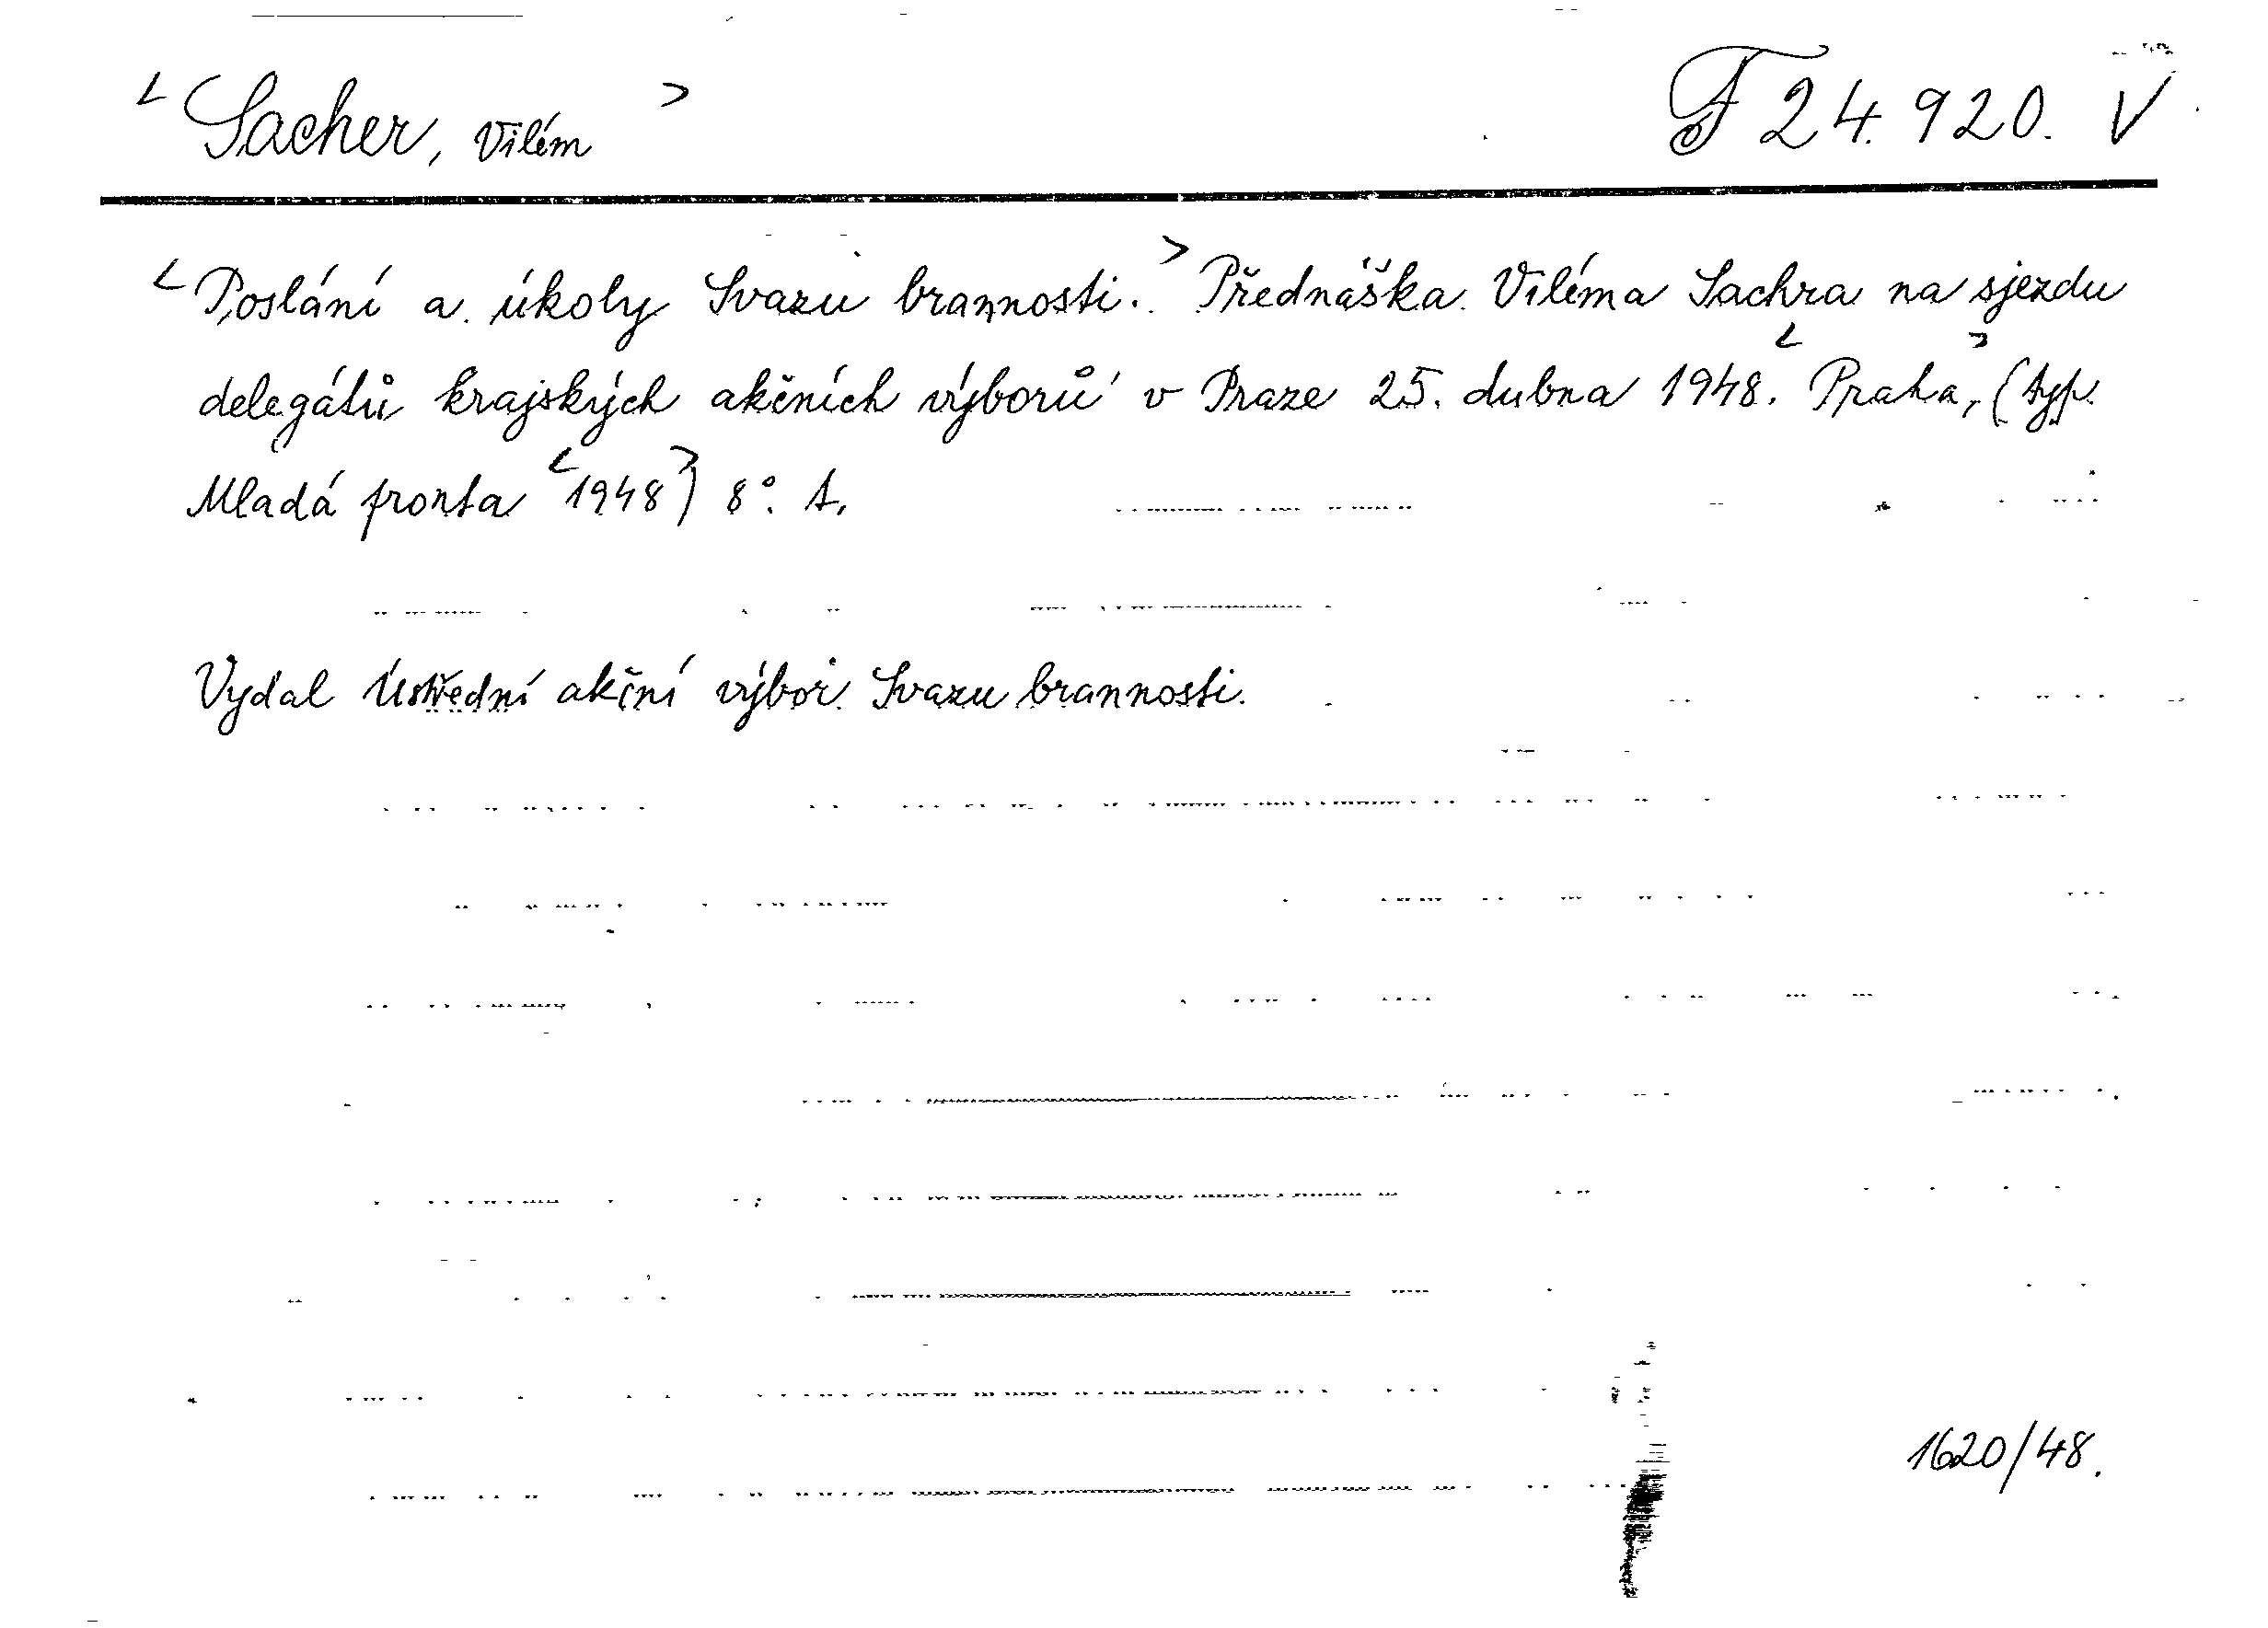 < Sacher, Vilém > F 24.920. V
< Poslání a úkoly Svazu brannosti. > Přednáška Viléma Sachra na sjezdu
delegátů krajských akčních výborů v Praze 25. dubna 1948. < Praha, > (typ.
Mladá fronta < 1948 >) 8°.
Vydal Ústřední akční výbor Svazu brannosti.
1620/48.